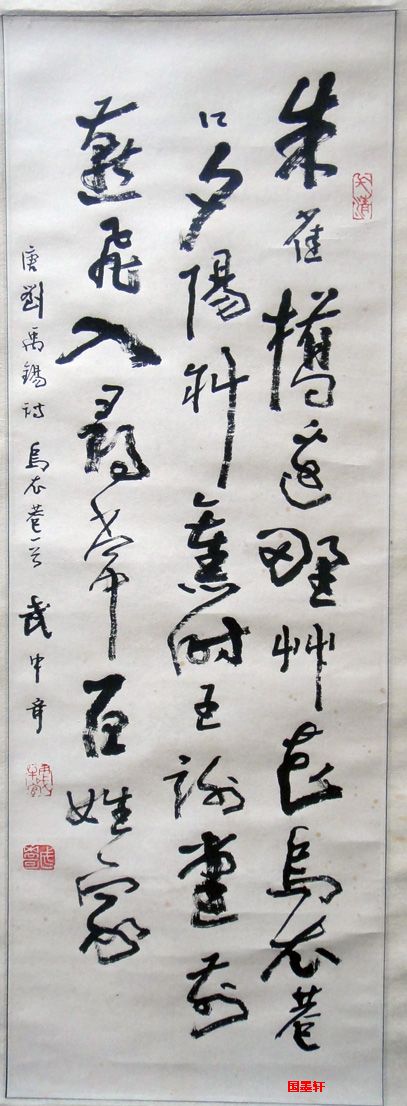 朱雀橋邊野艸花烏衣巷
口夕陽斜舊時王謝堂前
燕飛入尋常百姓家
唐劉禹錫詩烏衣巷一首武中奇
国墨轩